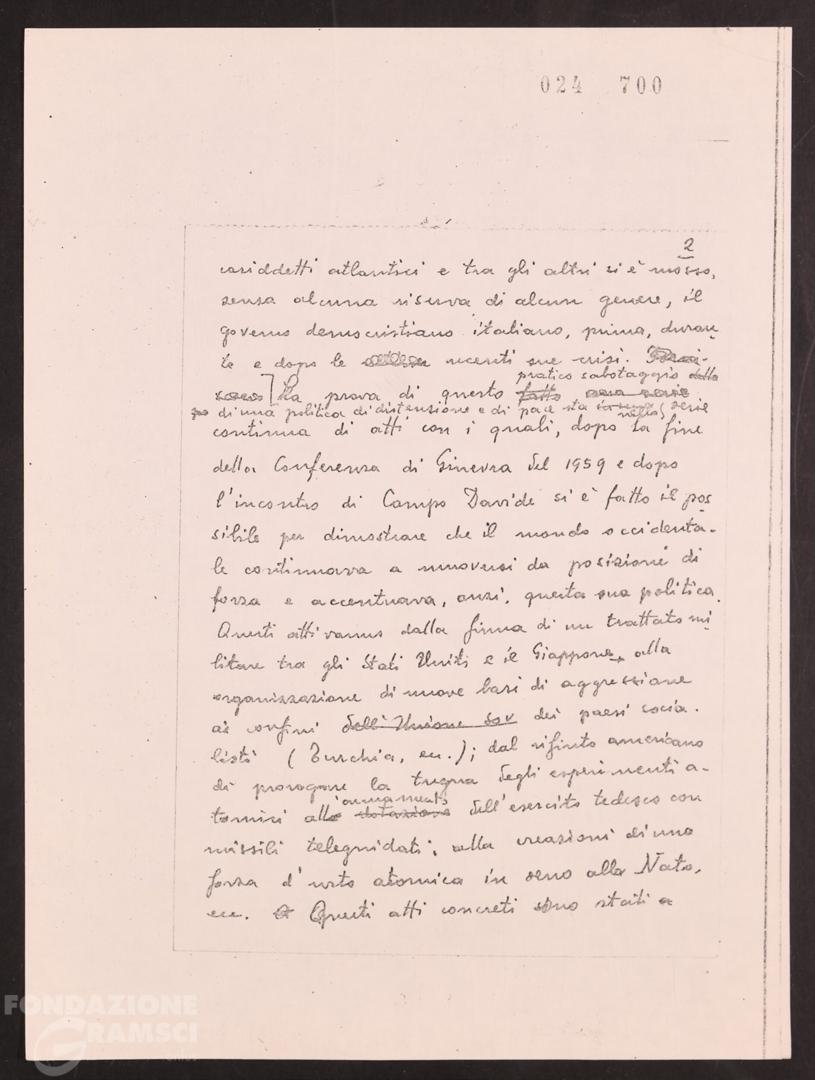 024 700
2
cosiddetti atlantici e tra gli altri si è mosso,
senza alcuna riserva di alcun genere, il
governo democristiano italiano, prima, duran-
te e dopo le recenti sue crisi.
pratico sabotaggio della
La prova di questo fatto una serie
di una politica di distensione e di pace sta nella serie
continua di atti con i quali, dopo la fine
della Conferenza di Ginevra del 1959 e dopo
l'incontro di Campo Davide si è fatto il pos
sibile per dimostrare che il mondo occidenta-
le continuava a muoversi da posizioni di
forza e accentuava, anzi, questa sua politica.
Questi atti vanno dalla firma di un trattato mi-
litare tra gli Stati Uniti e il Giappone, alla
organizzazione di nuove basi di aggressione
ai confini dell'Unione Sov dei paesi socia-
listi (Turchia, ecc.); dal rifiuto americano
di prorogare la tregua degli esperimenti a-
armamento
tomici all' dotazione dell'esercito tedesco con
missili teleguidati; alla creazioni di una
forza d'urto atomica in seno alla Nato,
ecc. Questi atti concreti sono stati a
FONDAZIONE
GRAMSCI